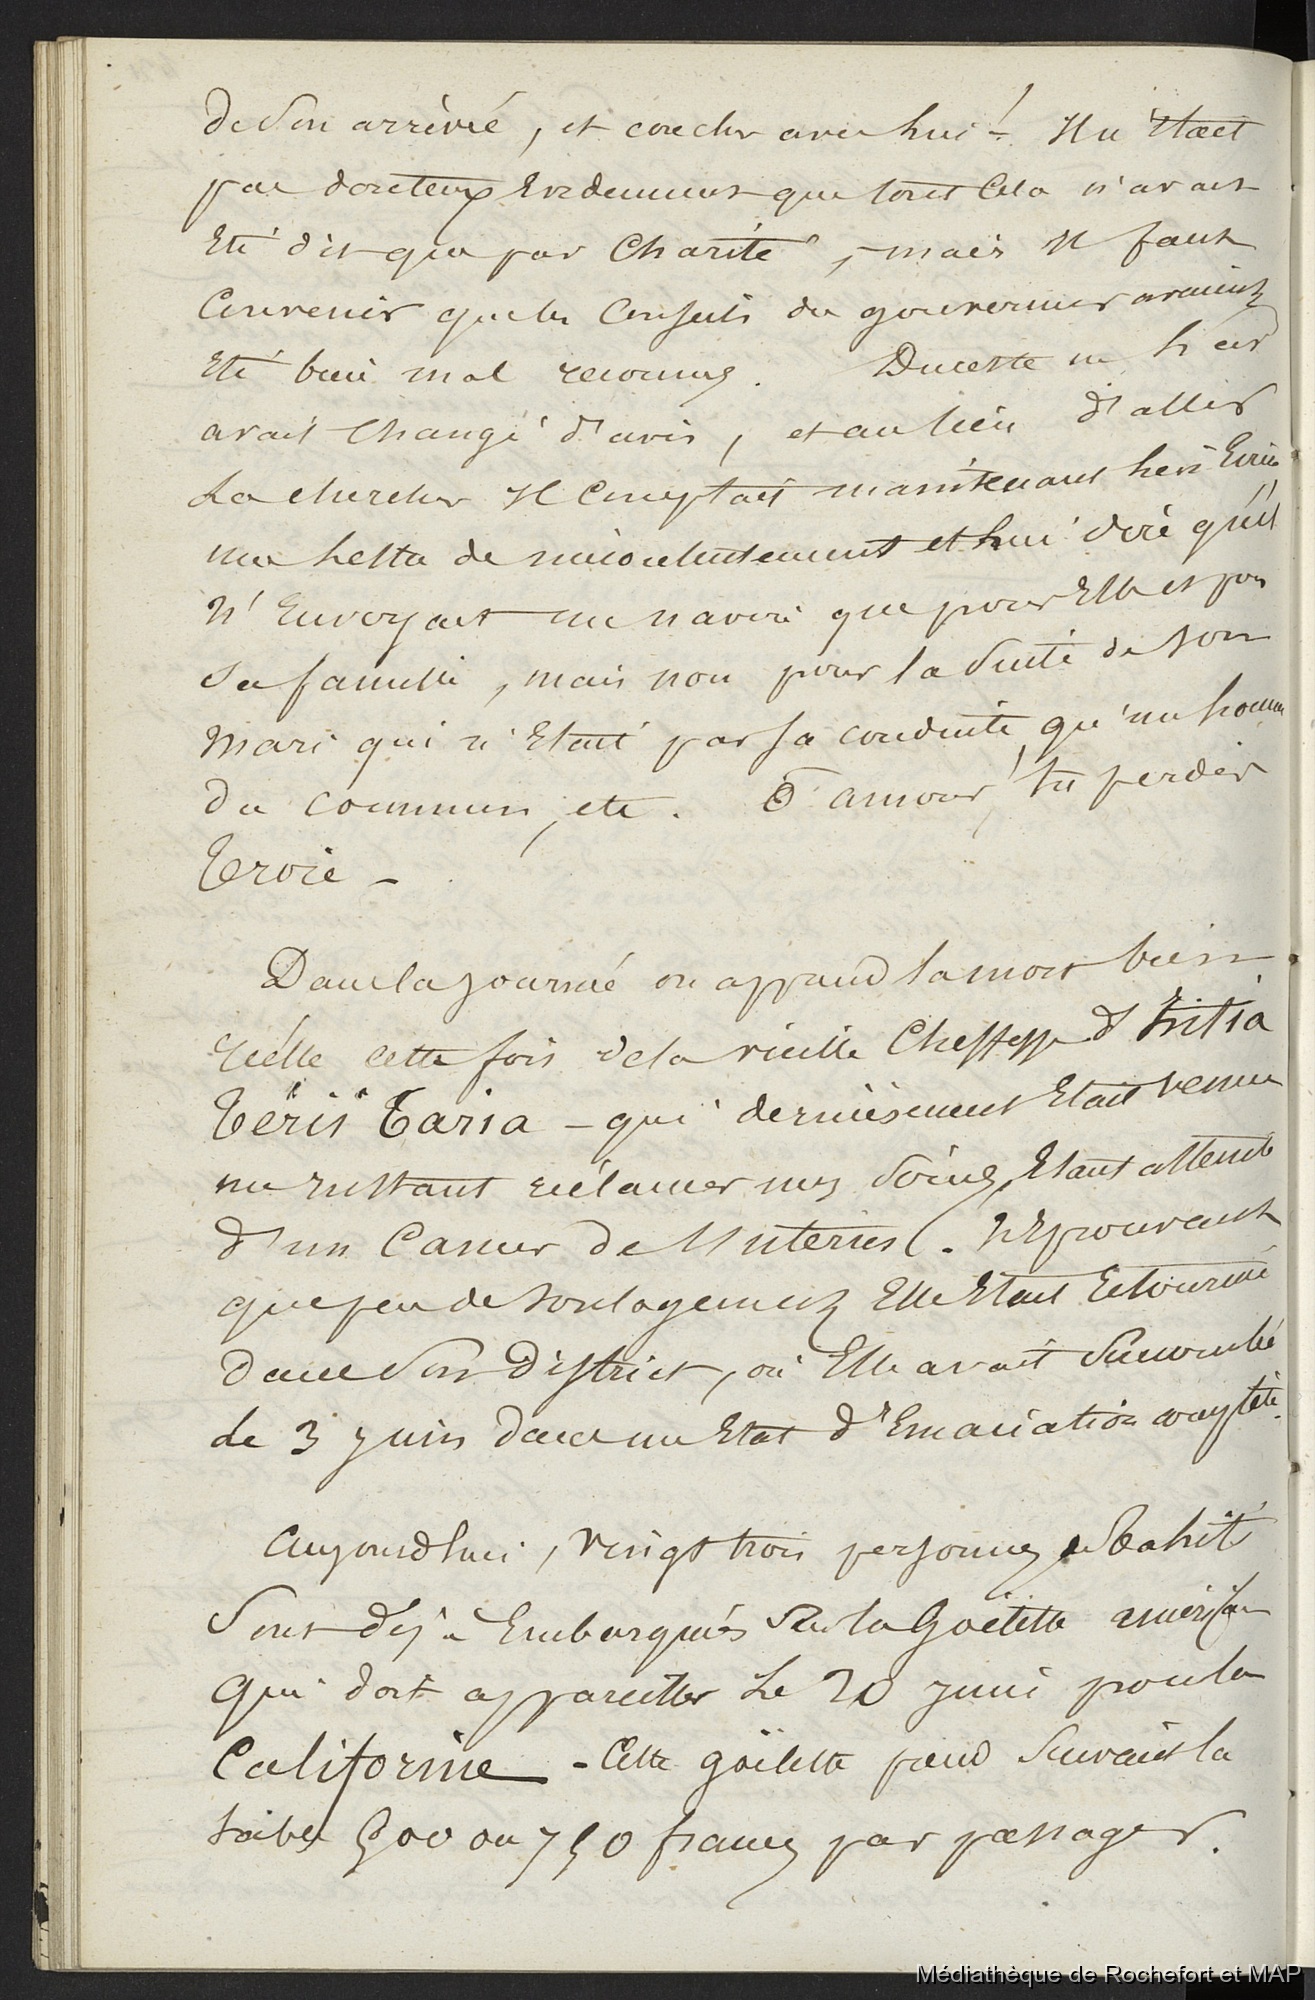 de son arrivée, et coucher avec lui! Il n'était
pas douteux Evidemment que tout Cela n'avait
Eté dit que par Charité, mais Il faut
Convenir que les Conseils du gouverneur avaient
Eté bien mal reconnus. Du reste
avait Changé d'avis, et au lieu d'aller
La chercher Il Comptait maintenant lui Ecrire
une lettre de mécontentement et lui dire qu'il
N'Envoyait un navire que pour Elle et pour
Sa famille, mais non pour la Suite de son
Mari qui n'Etait par sa conduite qu'un homme
du commun, etc. ô amour, tu perdis
Troie –
Dans la journée on apprend la mort bien
réelle cette fois de la vieille Cheffesse d'Hitia
Tërii Taria – qui dernièrement Etait venue
un instant réclamer mes Soins, Etant atteinte
d'un Cancer de l'Uterus. N'Eprouvant
que peu de soulagement Elle Etait retournée
dans Son District, où Elle avait Succombé
le 3 juin dans un Etat d'Emaciation complète.
Aujourd'hui, Vingt trois personnes de Tahiti
Sont déjà Embarqués Sur la Goëlette américaine
Qui doit appareiller Le 20 juin pour la
Californie – Cette goëlette prend Suivant la
table 500 ou 750 francs par passager.
Médiathèque de Rochefort et MAP